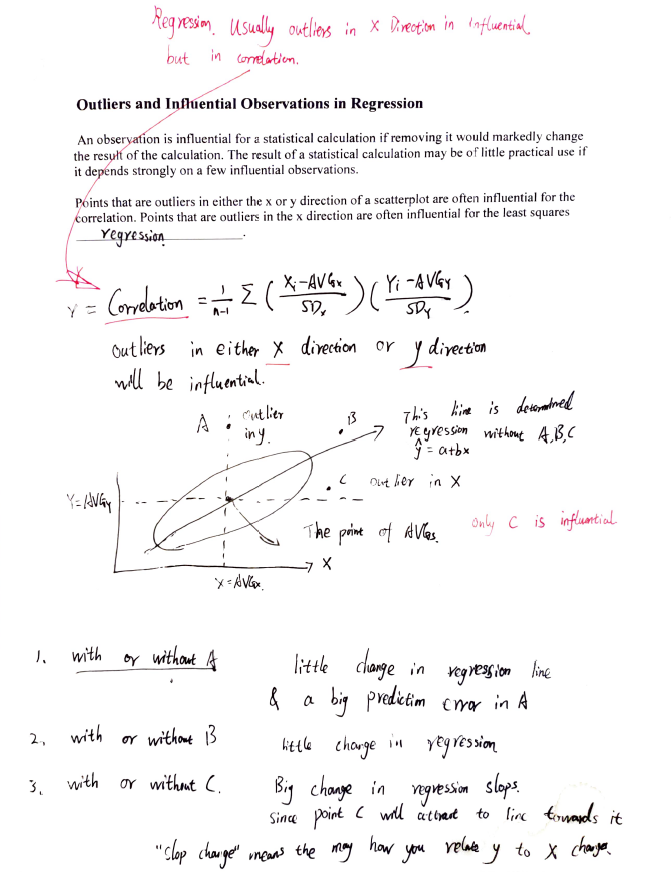 Regression. Usually outliers in X Direction in influential
but in correlation.
Outliers and Influential Observations in Regression
An observation is influential for a statistical calculation if removing it would markedly change
the result of the calculation. The result of a statistical calculation may be of little practical use if
it depends strongly on a few influential observations.
Points that are outliers in either the x or y direction of a scatterplot are often influential for the
correlation. Points that are outliers in the x direction are often influential for the least squares
regression.
r = Correlation = 1/(n-1) Σ ( (Xi - AVGx)/SDx ) ( (Yi - AVGY)/SDY )
outliers in either X direction or y direction
will be influential.
A outlier
in y.
B
This line is determined
regression without A,B,C
ŷ = a+bx
C outlier in X
Y=AVGy
The point of AVGs.
only C is influential
X
X=AVGx.
1. with or without A
little change in regression line
& a big prediction error in A
2. with or without B little change in regression
3. with or without C. Big change in regression slops.
Since point C will attract to line towards it
"Slop change" means the way how you relate y to X change.